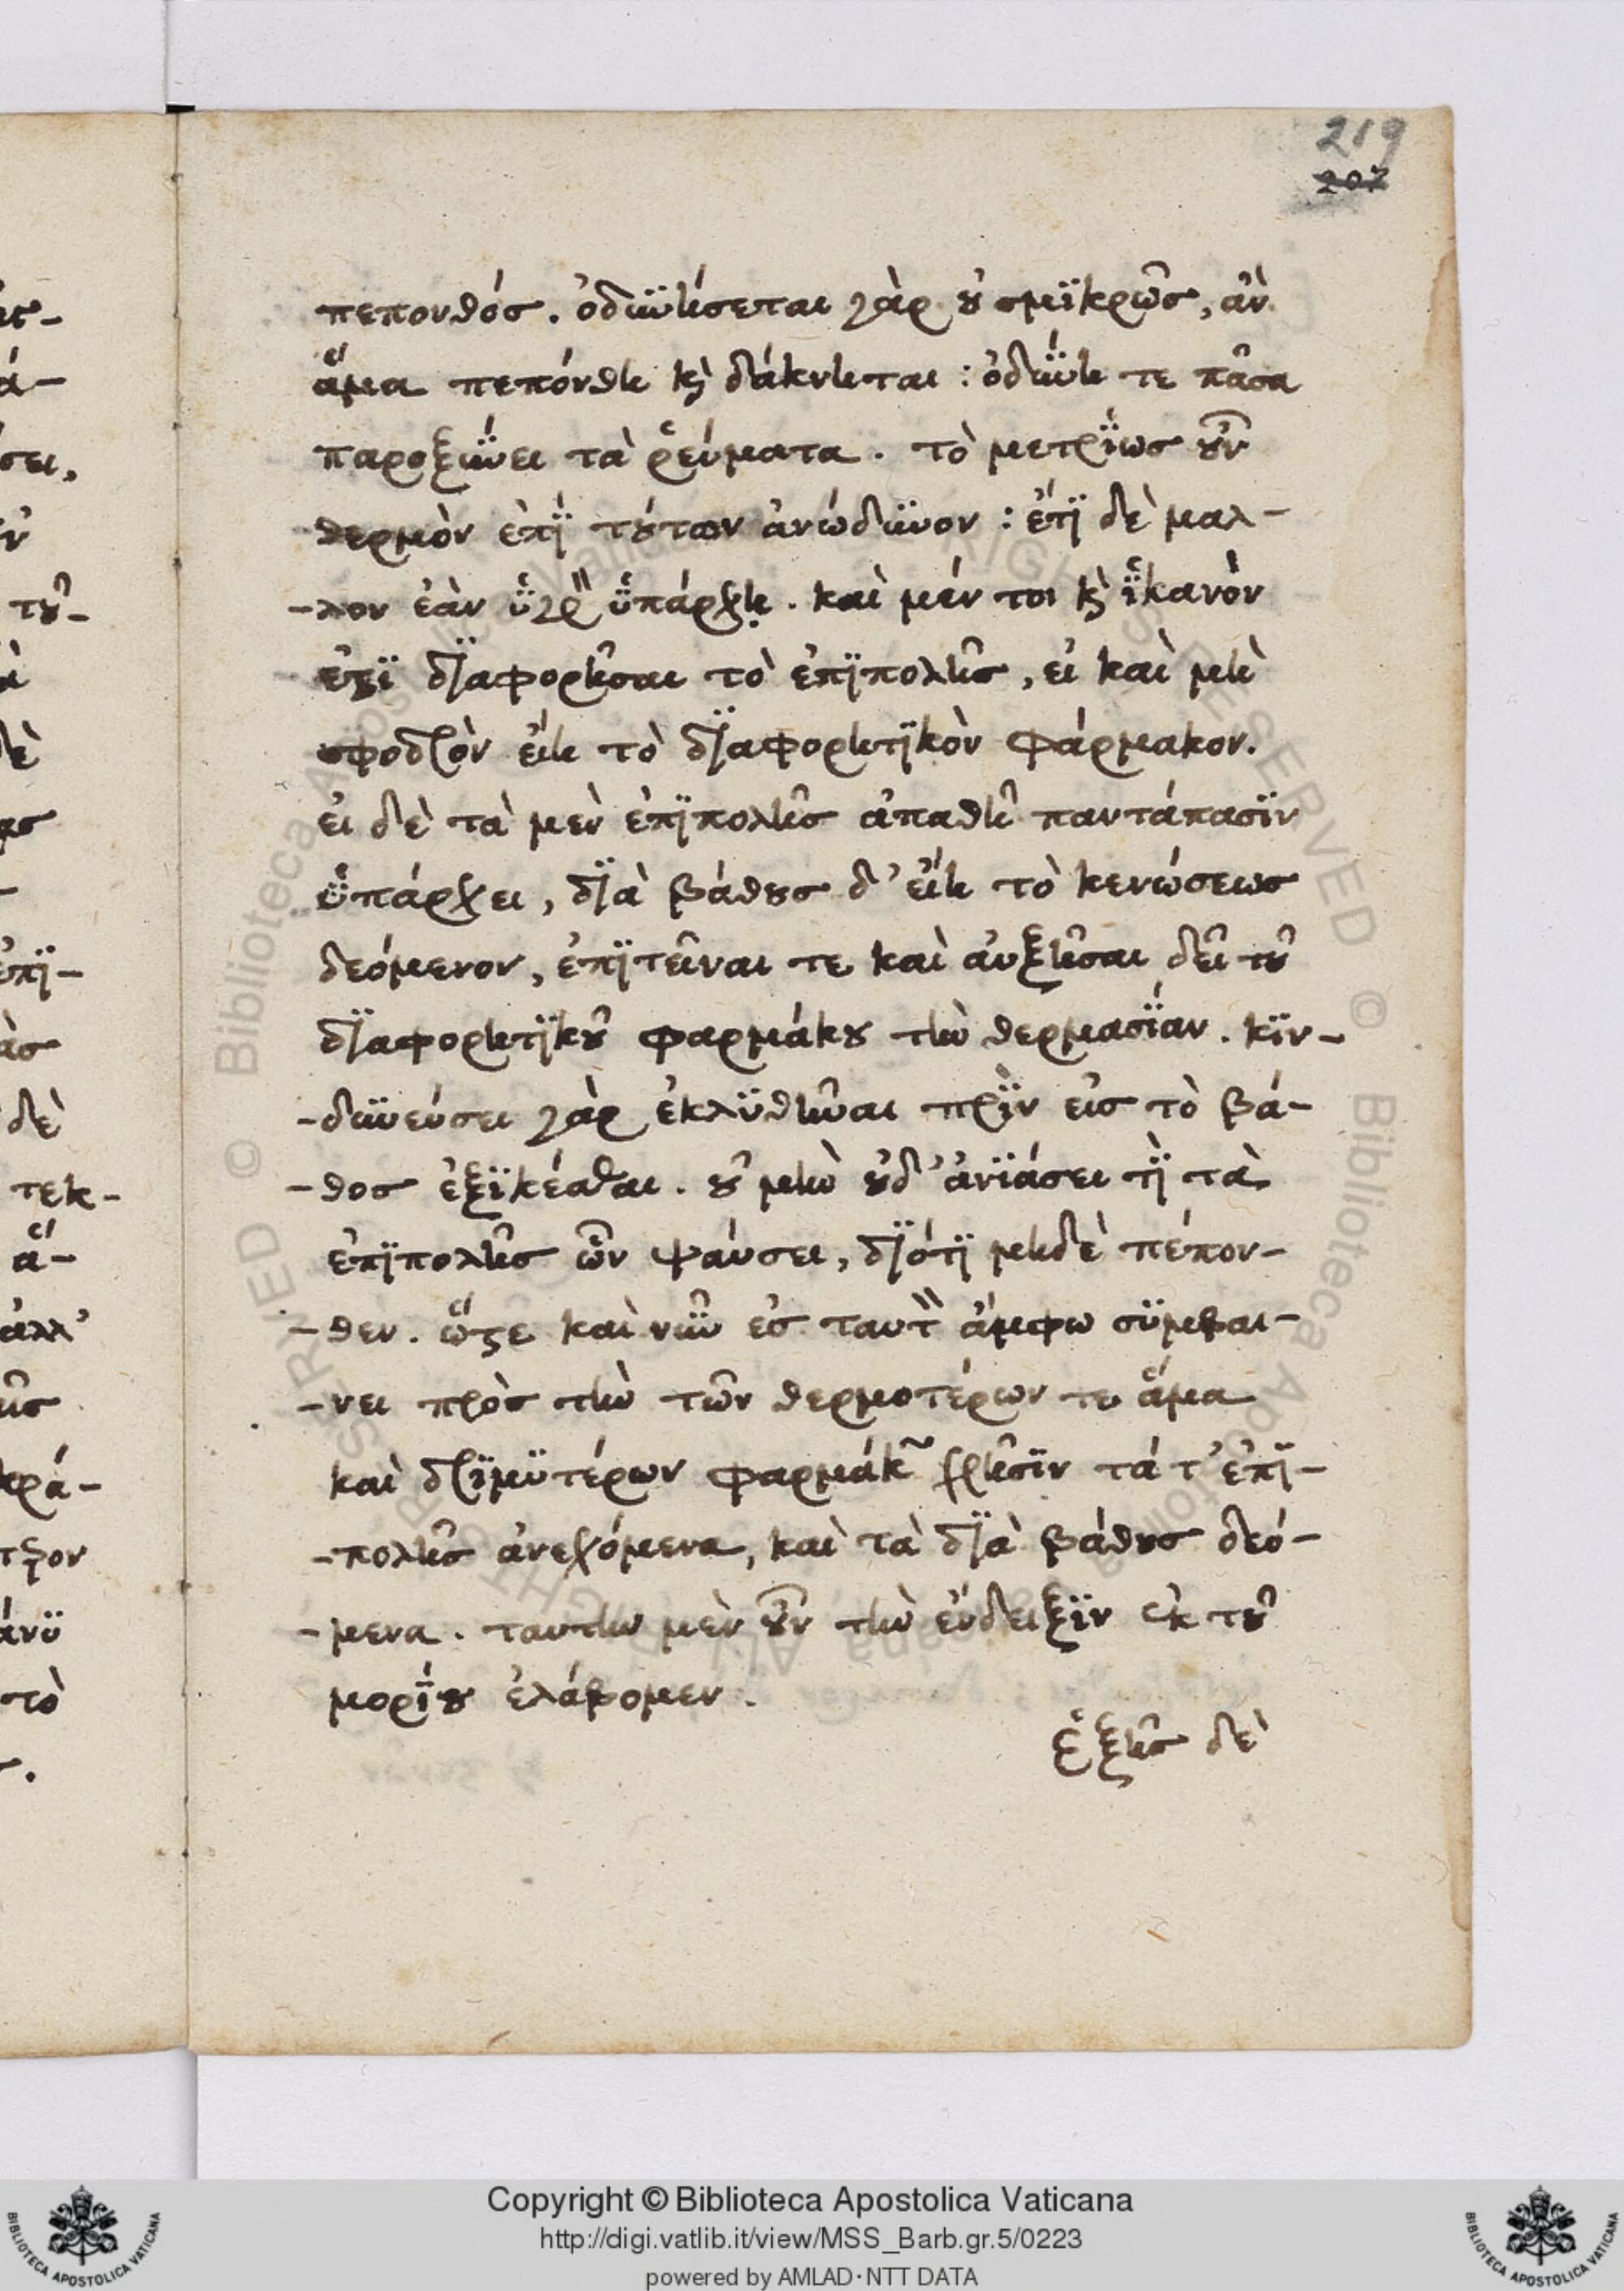 219
207
πεπονθόσ. ὀδϋνήσεται γὰρ οὐ σμϊκρῶσ, ἂν
ἅμα πεπόνθη κὶ δάκνηται : ὀδΰνη τε πᾶσα
παροξΰνει τὰ ῥεύματα. τὸ μετρΐωσ οὖν
θερμὸν ἐπῒ τούτων ἀνώδϋνον : ἔτϊ δὲ μαλ-
-λον ἐὰν ὑγρ ὑπάρχῃ. καὶ μέν τοι κὶ ἱκανὸν
ἐστϊ δϊαφορῆσαι τὸ ἐπϊπολῆσ, εἰ καὶ μὴ
σφοδρὸν εἴη τὸ δϊαφορητϊκὸν φάρμακον.
εἰ δὲ τὰ μὲν ἐπϊπολῆσ ἀπαθῆ παντάπασϊν
ὑπάρχει, δϊὰ βάθουσ δ’ εἴη τὸ κενώσεωσ
δεόμενον, ἐπϊτεῖναι τε καὶ αὐξῆσαι δεῖ τοῦ
δϊαφορητϊκοῦ φαρμάκου τὴν θερμασΐαν. κϊν-
-δϋνεύσει γὰρ ἐκλϋθῆναι πρῒν εἰσ τὸ βά-
-θοσ ἐξϊκέσθαι. οὐ μὴν οὐδ’ ἀνϊάσει τῒ τὰ
ἐπϊπολῆσ ὧν ψαύσει, δϊότϊ μηδὲ πέπον-
-θεν. ὥστε καὶ νῦν ἐσ ταυτ ἄμφω σϋμβαι-
-νει πρὸσ τὴν τῶν θερμοτέρων τε ἅμα
καὶ δρϊμϋτέρων φαρμάκ χρῆσϊν τά τ’ ἐπϊ-
-πολῆσ ἀνεχόμενα, καὶ τὰ δϊὰ βάθουσ δεό-
-μενα. ταυτην μὲν οὖν τὴν ἔνδειξϊν ἐκ τοῦ
μορΐου ἐλάβομεν.
ἑξῆσ δὲ
Copyright © Biblioteca Apostolica Vaticana
http://digi.vatlib.it/view/MSS_Barb.gr.5/0223
powered by AMLAD·NTT DATA